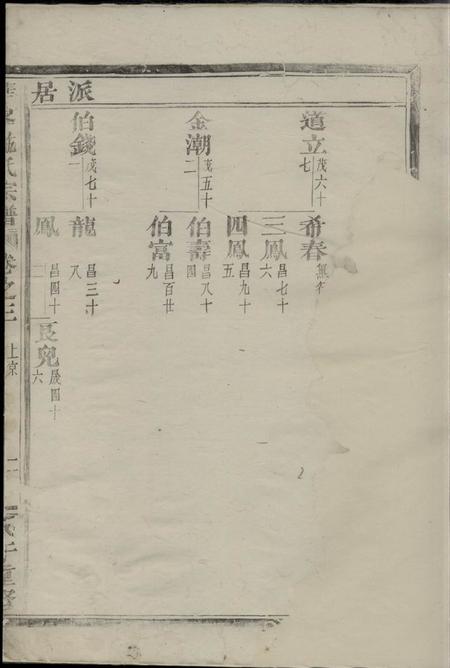 派居
道立 茂六十七
希春
三鳳 昌七十六
四鳳 昌九十五
金潮 茂五十二
伯壽 昌八十四
伯富 昌百廿九
伯錢 茂七十一
龍 昌三十八
鳳 昌四十二
長兒 晟四十六
施氏宗譜 卷之三 上京
重修